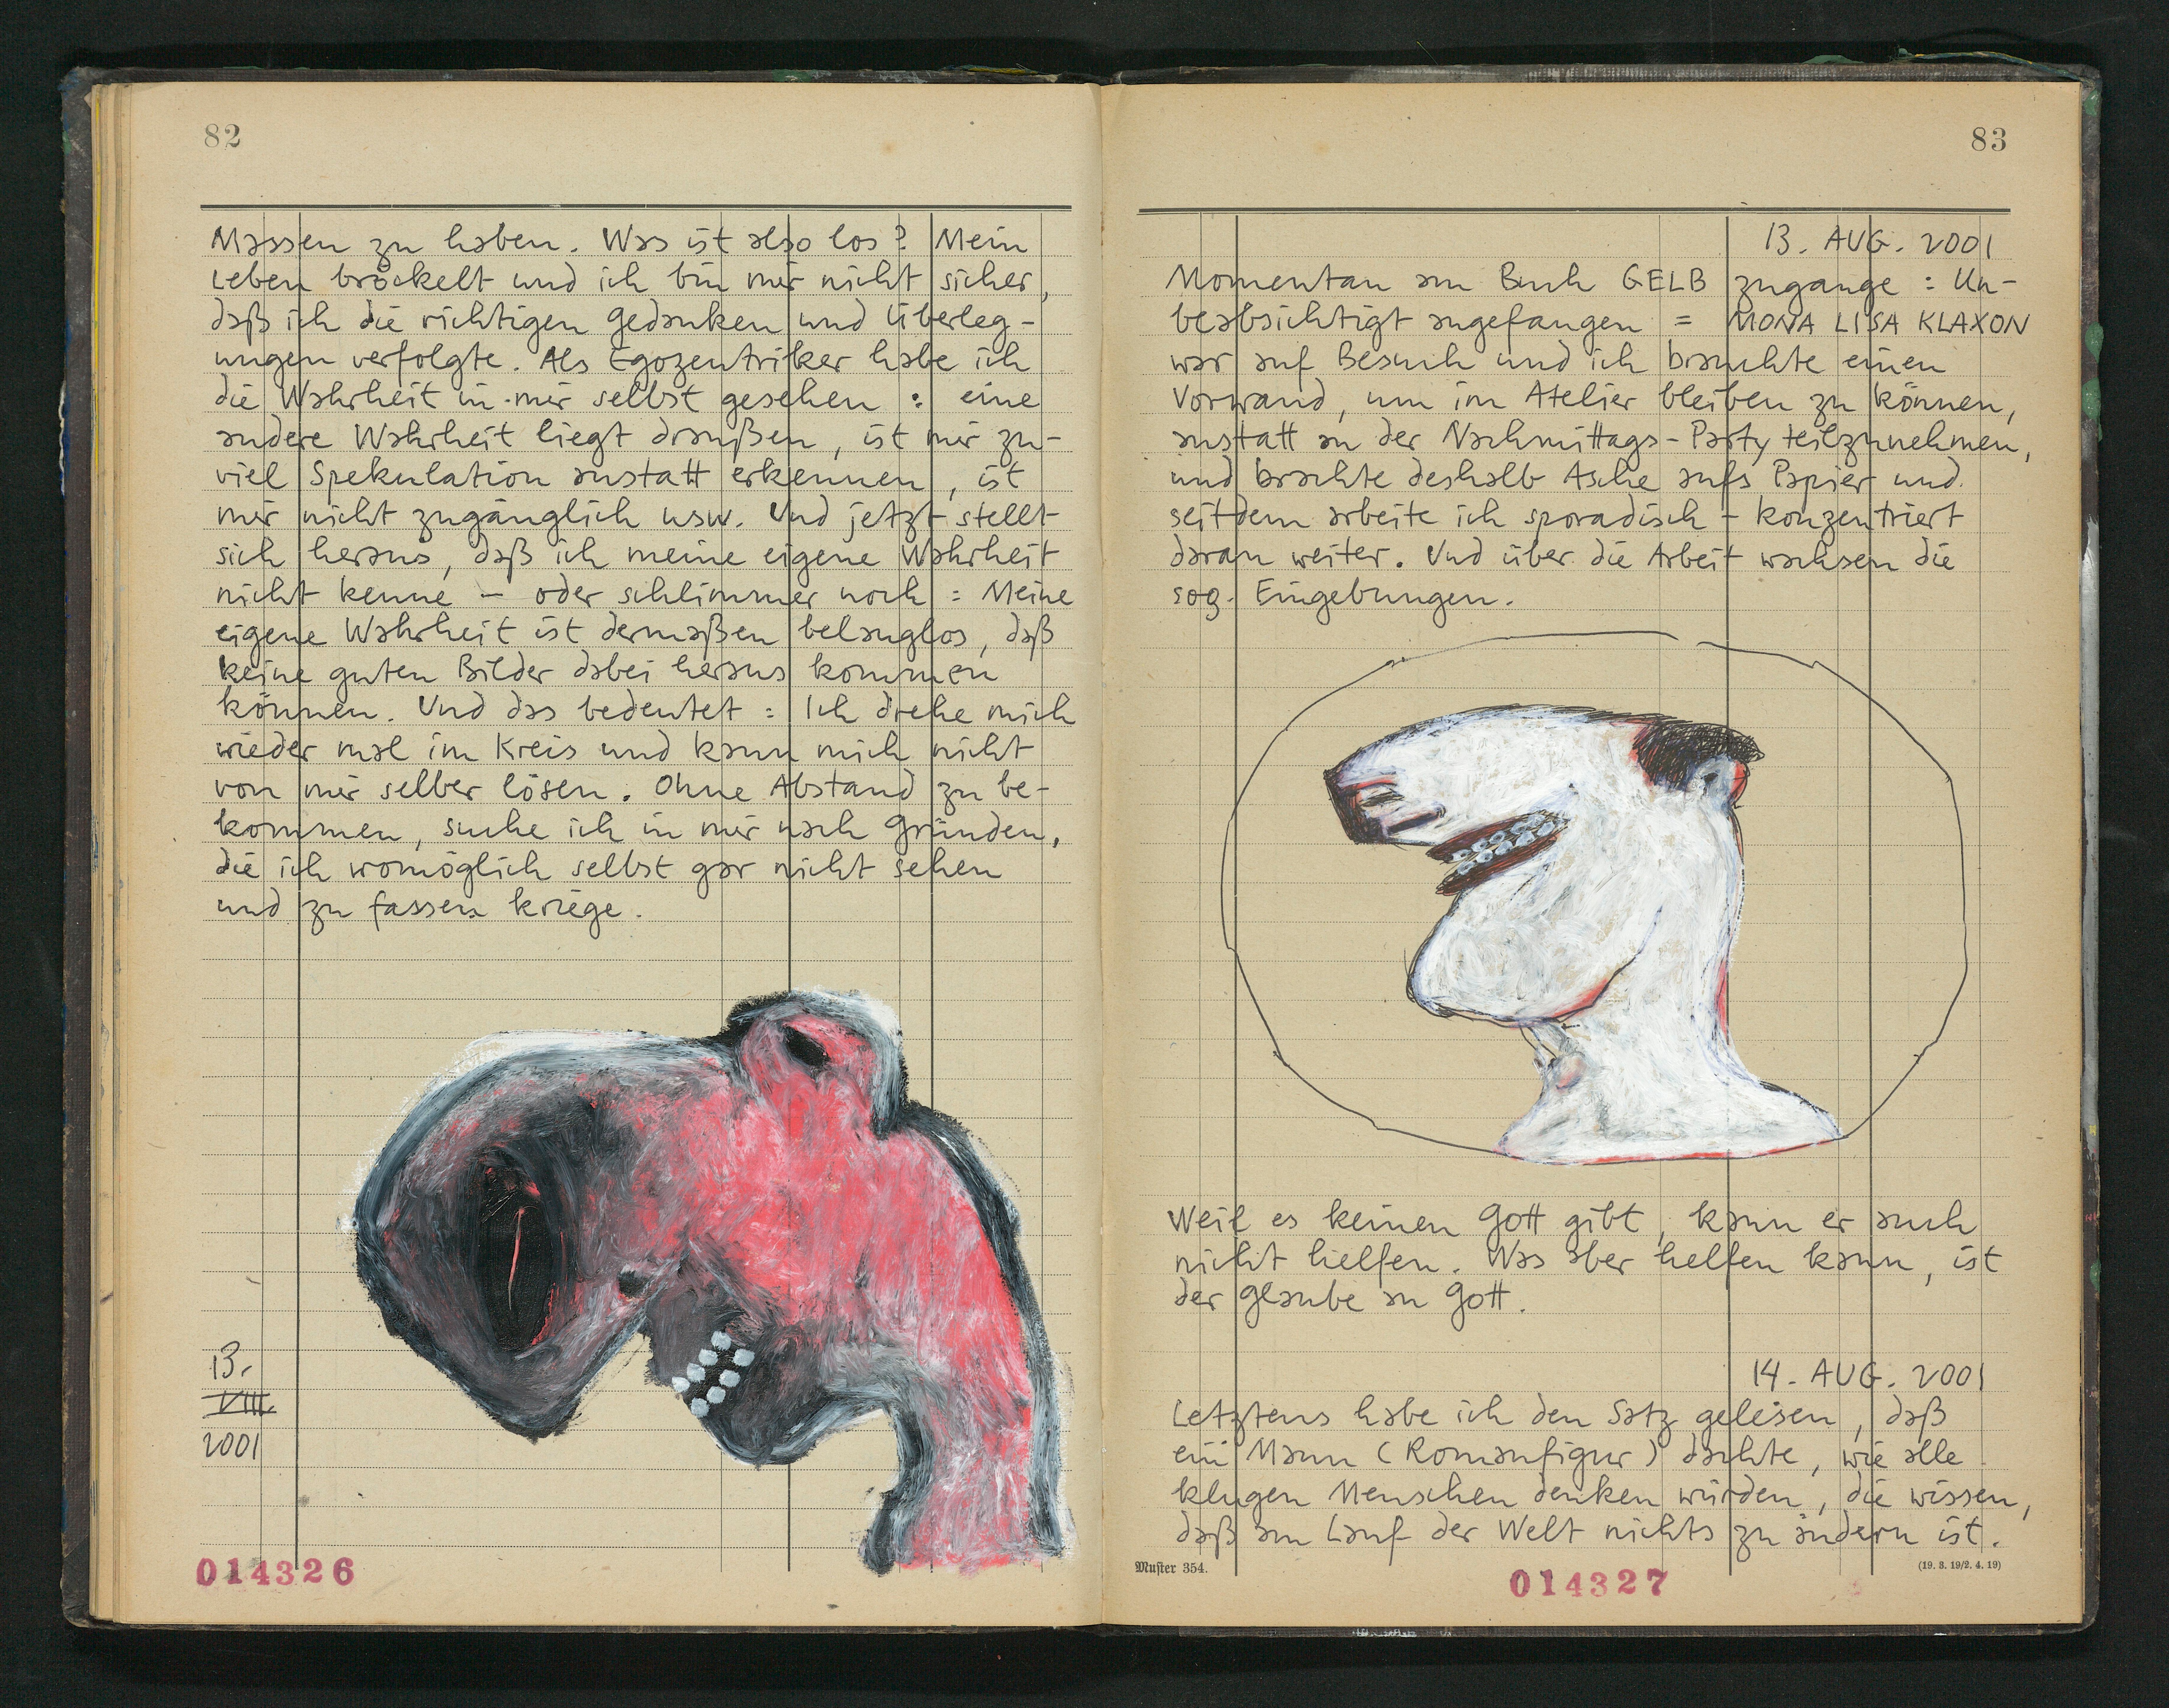 82
Massen zu haben. Was ist also los? Mein
Leben bröckelt und ich bin mir nicht sicher,
daß ich die richtigen Gedanken und Überleg-
ungen verfolgte. Als Egozentriker habe ich
die Wahrheit in mir selbst gesehen : eine
andere Wahrheit liegt draußen, ist mir zu-
viel Spekulation anstatt erkennen, ist
mir nicht zugänglich usw. Und jetzt stellt
sich heraus, daß ich meine eigene Wahrheit
nicht kenne – oder schlimmer noch : Meine
eigene Wahrheit ist dermaßen belanglos, daß
keine guten Bilder dabei heraus kommen
können. Und das bedeutet : Ich drehe mich
wieder mal im Kreis und kann mich nicht
von mir selber lösen. Ohne Abstand zu be-
kommen, suche ich in mir nach Gründen,
die ich womöglich selbst gar nicht sehen
und zu fassen kriege.
13.
VIII.
2001
014326
83
13. AUG. 2001
Momentan am Buch GELB zugange : Un-
beabsichtigt angefangen = MONA LISA KLAXON
war auf Besuch und ich brauchte einen
Vorwand, um im Atelier bleiben zu können,
anstatt an der Nachmittags-Party teilzunehmen,
und brachte deshalb Asche aufs Papier und
seitdem arbeite ich sporadisch – konzentriert
daran weiter. Und über die Arbeit wachsen die
sog. Eingebungen.
Weil es keinen Gott gibt, kann er auch
nicht helfen. Was aber helfen kann, ist
der Glaube an Gott.
14. AUG. 2001
Letztens habe ich den Satz gelesen, daß
ein Mann (Romanfigur) dachte, wie alle
klugen Menschen denken würden, die wissen,
daß am Lauf der Welt nichts zu ändern ist.
Muster 354.
(19. 3. 19/2. 4. 19)
014327